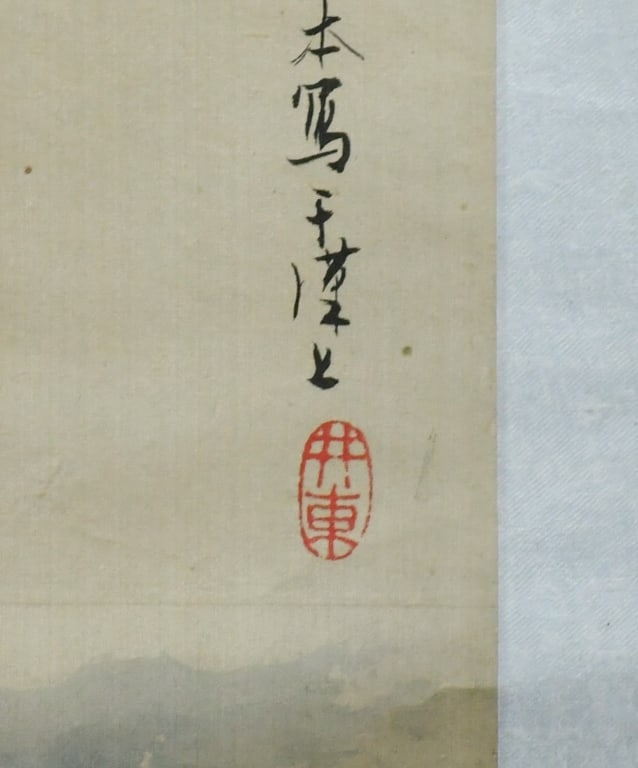 本寫于漢上
井東